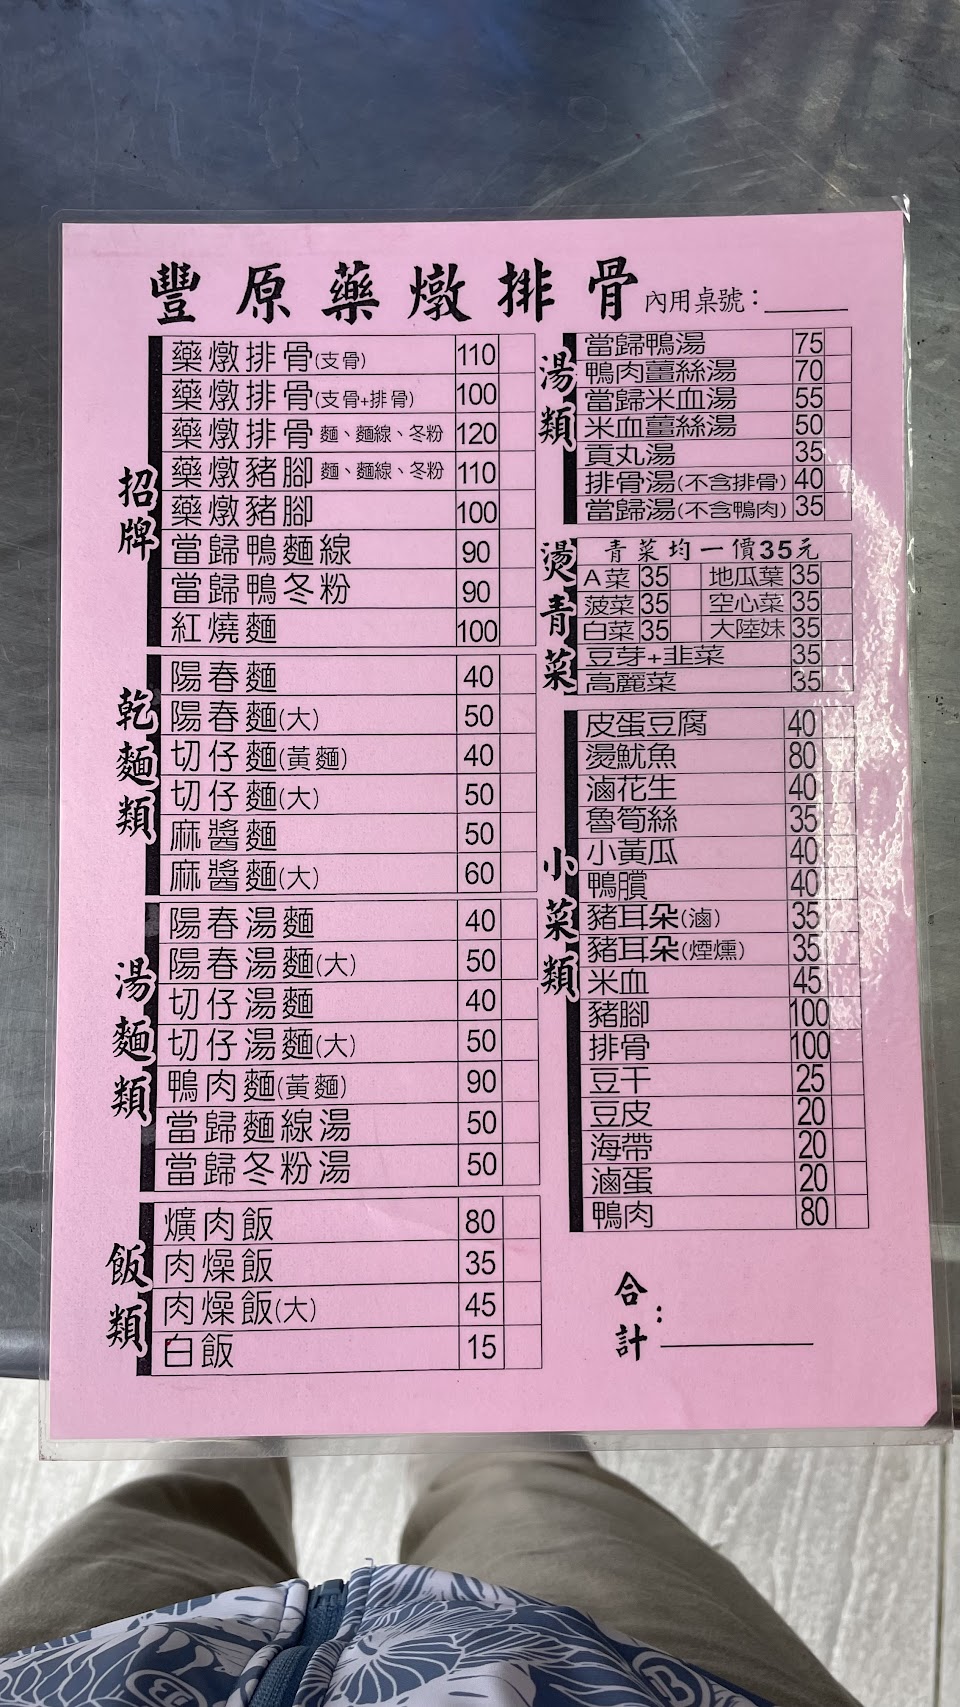 豐原藥燉排骨 內用桌號：
招牌
藥燉排骨(支骨) 110
藥燉排骨(支骨+排骨) 100
藥燉排骨 麵、麵線、冬粉 120
藥燉豬腳 麵、麵線、冬粉 110
藥燉豬腳 100
當歸鴨麵線 90
當歸鴨冬粉 90
紅燒麵 100
乾麵類
陽春麵 40
陽春麵(大) 50
切仔麵(黃麵) 40
切仔麵(大) 50
麻醬麵 50
麻醬麵(大) 60
湯麵類
陽春湯麵 40
陽春湯麵(大) 50
切仔湯麵 40
切仔湯麵(大) 50
鴨肉麵(黃麵) 90
當歸麵線湯 50
當歸冬粉湯 50
飯類
爌肉飯 80
肉燥飯 35
肉燥飯(大) 45
白飯 15
湯類
當歸鴨湯 75
鴨肉薑絲湯 70
當歸米血湯 55
米血薑絲湯 50
貢丸湯 35
排骨湯(不含排骨) 40
當歸湯(不含鴨肉) 35
燙青菜
青菜均一價35元
A菜 35 地瓜葉 35
菠菜 35 空心菜 35
白菜 35 大陸妹 35
豆芽+韭菜 35
高麗菜 35
小菜類
皮蛋豆腐 40
燙魷魚 80
滷花生 40
魯筍絲 35
小黃瓜 40
鴨腪 40
豬耳朵(滷) 35
豬耳朵(煙燻) 35
米血 45
豬腳 100
排骨 100
豆干 25
豆皮 20
海帶 20
滷蛋 20
鴨肉 80
合計：